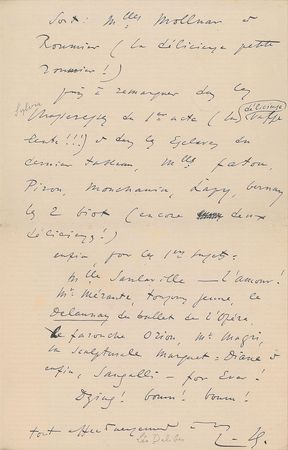 Sont : Mlles Mollnar et
Roumier (la délicieuse petite
Roumier !)
puis à remarquer dans les
Sylvia
du 1er acte (la délicieuse
lente !!!) et dans les Esclaves du
dernier tableau, Mlles fatou,
Piron, Monchanin, Lapy, Bernay
les 2 biot (encore deux
délicieuses !)
enfin, pour les 1ers sujets :
Mlle Sanlaville — L'amour !
Mr Mérante, toujours jeune, le
Delaunay du ballet de l'Opéra
le farouche Orion, Mr Magri,
la sculpturale Marquet = Diane et
enfin, Sangalli — for Ever !
Dzing ! boum ! boum !
tout affectueusement à v.
Léo Delibes